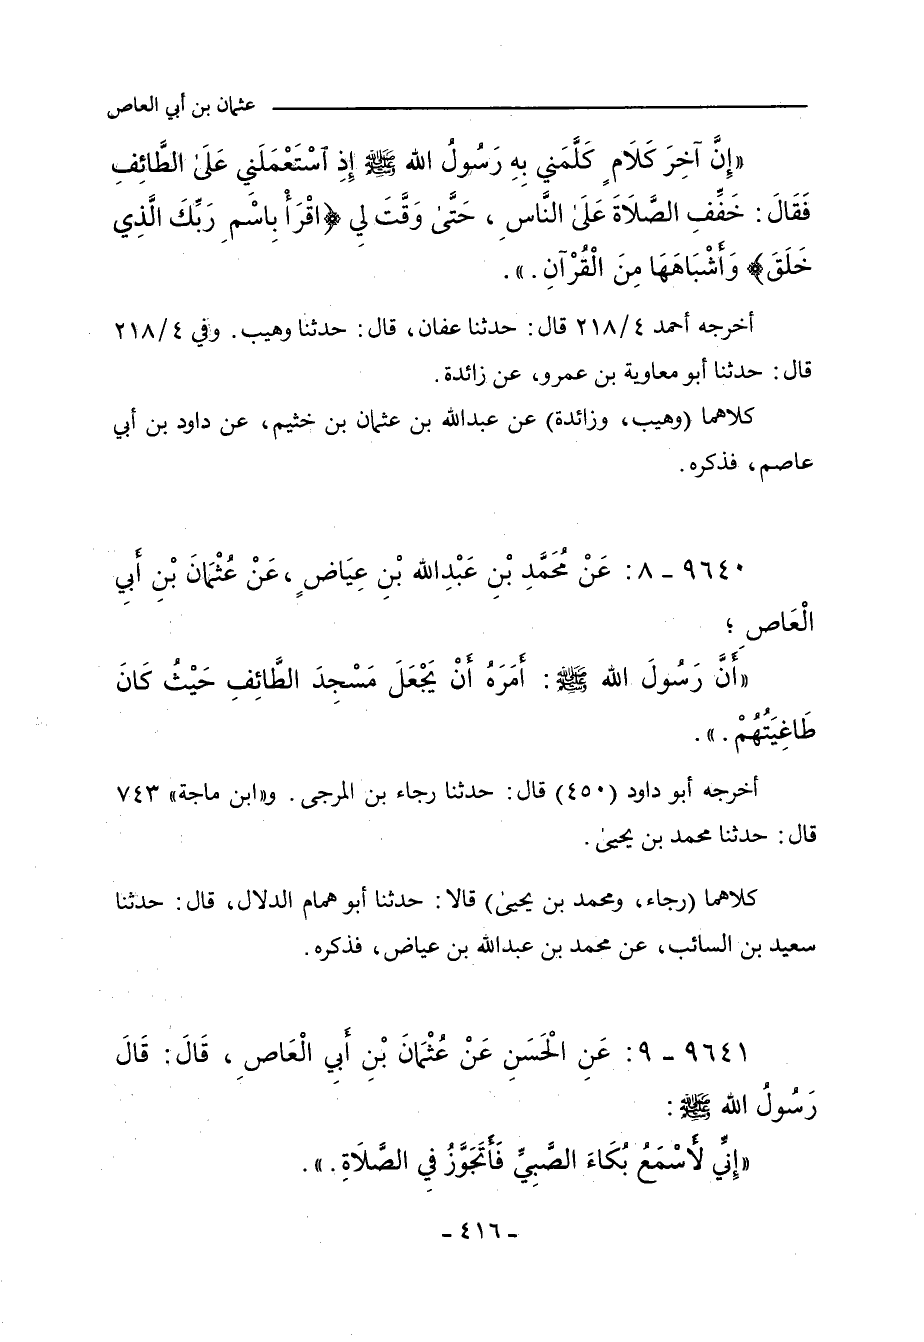 عثمان بن أبي العاص
«إِنَّ آخِرَ كَلَامٍ كَلَّمَنِي بِهِ رَسُولُ الله ﷺ إِذِ ٱسْتَعْمَلَنِي عَلَىٰ الطَّائِفِ
فَقَالَ: خَفِّفِ الصَّلَاةَ عَلَىٰ النَّاسِ، حَتَّىٰ وَقَّتَ لِي ﴿اقْرَأْ بِاسْمِ رَبِّكَ الَّذِي
خَلَقَ﴾ وَأَشْبَاهَهَا مِنَ الْقُرْآنِ.».
أخرجه أحمد ٤/٢١٨ قال: حدثنا عفان، قال: حدثنا وهيب. وفي ٤/٢١٨
قال: حدثنا أبو معاوية بن عمرو، عن زائدة.
كلاهما (وهيب، وزائدة) عن عبدالله بن عثمان بن خثيم، عن داود بن أبي
عاصم، فذكره.
٩٦٤٠ - ٨: عَنْ مُحَمَّدِ بْنِ عَبْدِالله بْنِ عِيَاضٍ، عَنْ عُثْمَانَ بْنِ أَبِي
الْعَاصِ؛
«أَنَّ رَسُولَ الله ﷺ: أَمَرَهُ أَنْ يَجْعَلَ مَسْجِدَ الطَّائِفِ حَيْثُ كَانَ
طَاغِيَتُهُمْ.».
أخرجه أبو داود (٤٥٠) قال: حدثنا رجاء بن المرجى. و«ابن ماجة» ٧٤٣
قال: حدثنا محمد بن يحيىٰ.
كلاهما (رجاء، ومحمد بن يحيىٰ) قالا: حدثنا أبو همام الدلال، قال: حدثنا
سعيد بن السائب، عن محمد بن عبدالله بن عياض، فذكره.
٩٦٤١ - ٩: عَنِ الْحَسَنِ عَنْ عُثْمَانَ بْنِ أَبِي الْعَاصِ، قَالَ: قَالَ
رَسُولُ الله ﷺ:
«إِنِّي لَأَسْمَعُ بُكَاءَ الصَّبِيِّ فَأَتَجَوَّزُ فِي الصَّلَاةِ.».
- ٤١٦ -